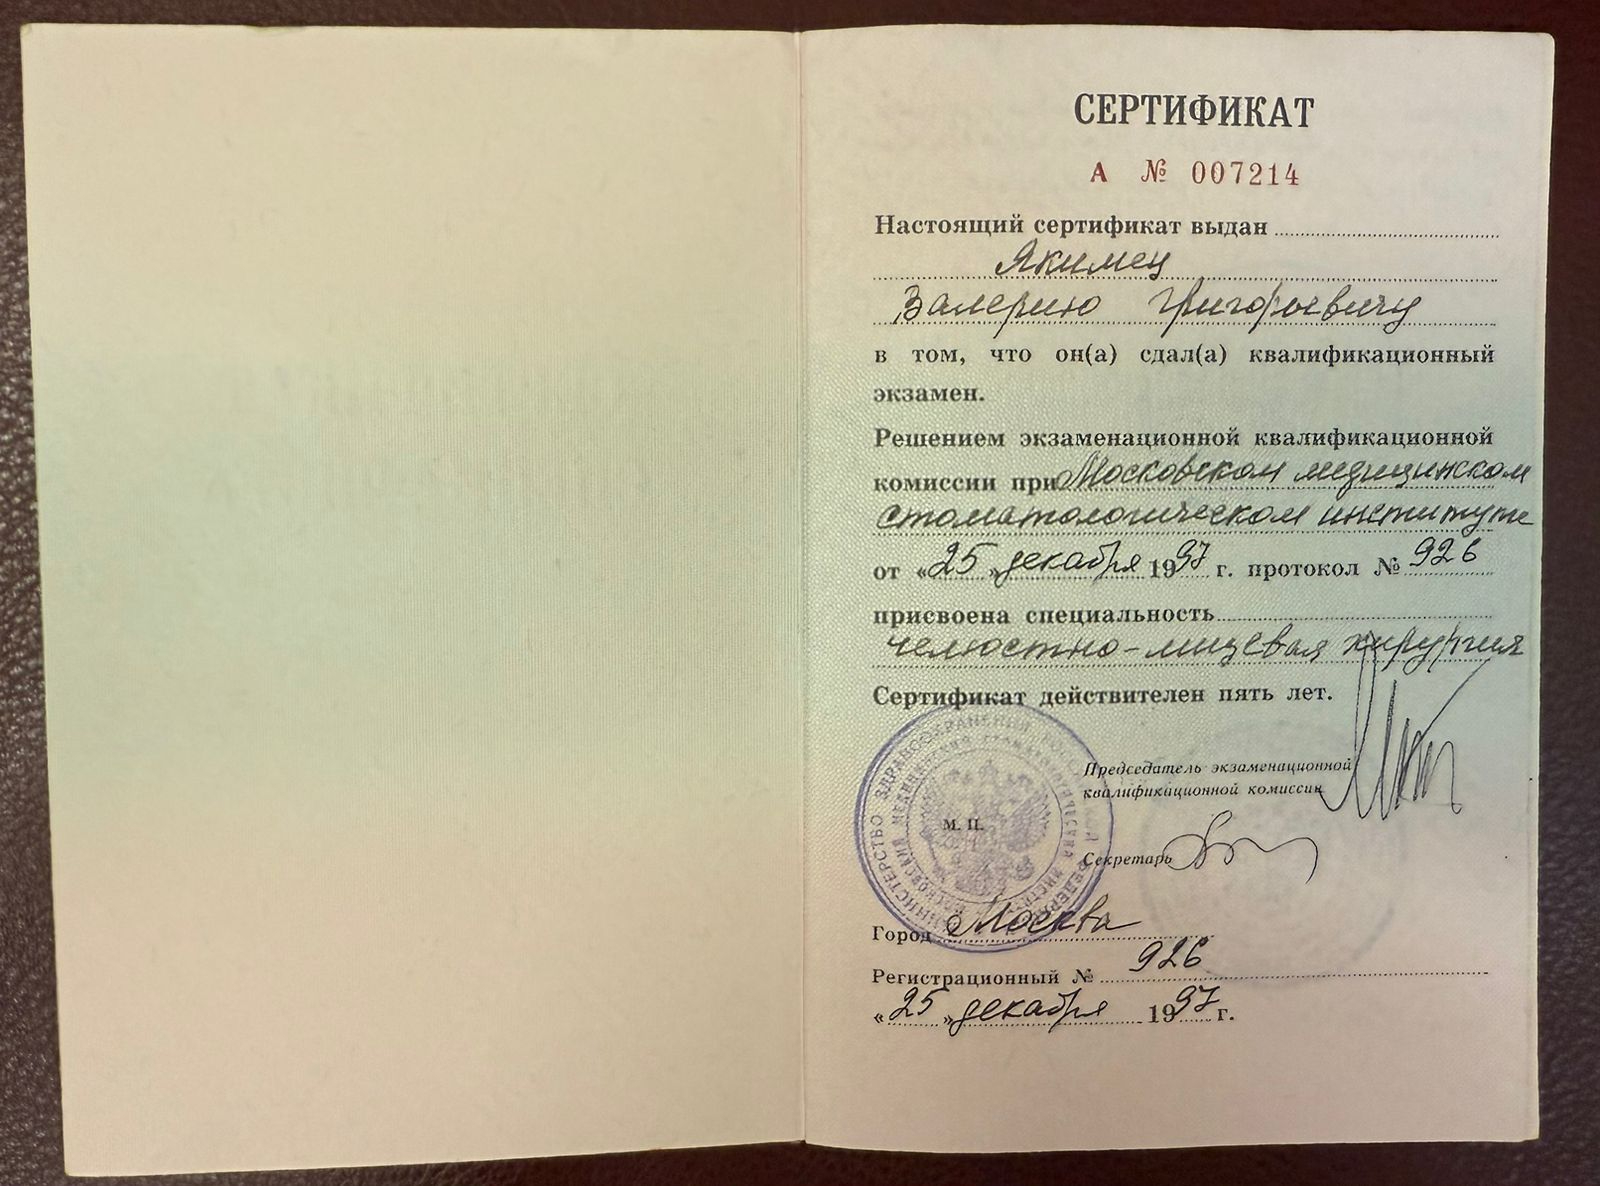 СЕРТИФИКАТ
А № 007214
Настоящий сертификат выдан
Якимец
Валерию Григорьевичу
в том, что он(а) сдал(а) квалификационный
экзамен.
Решением экзаменационной квалификационной
комиссии при Московском медицинском
стоматологическом институте
от «25» декабря 1997 г. протокол № 926
присвоена специальность
челюстно-лицевая хирургия
Сертификат действителен пять лет.
Председатель экзаменационной
квалификационной комиссии
М. П.
Секретарь
Город Москва
Регистрационный № 926
«25» декабря 1997 г.
МИНИСТЕРСТВО ЗДРАВООХРАНЕНИЯ
МОСКОВСКИЙ МЕДИЦИНСКИЙ СТОМАТОЛОГИЧЕСКИЙ